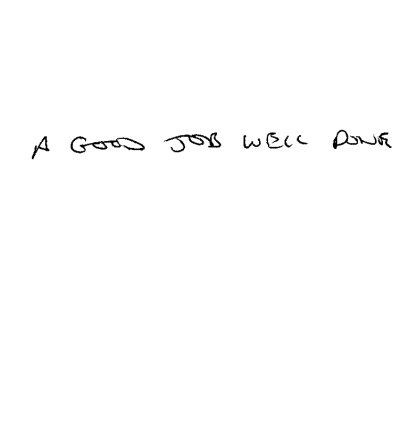 A GOOD JOB WELL DONE